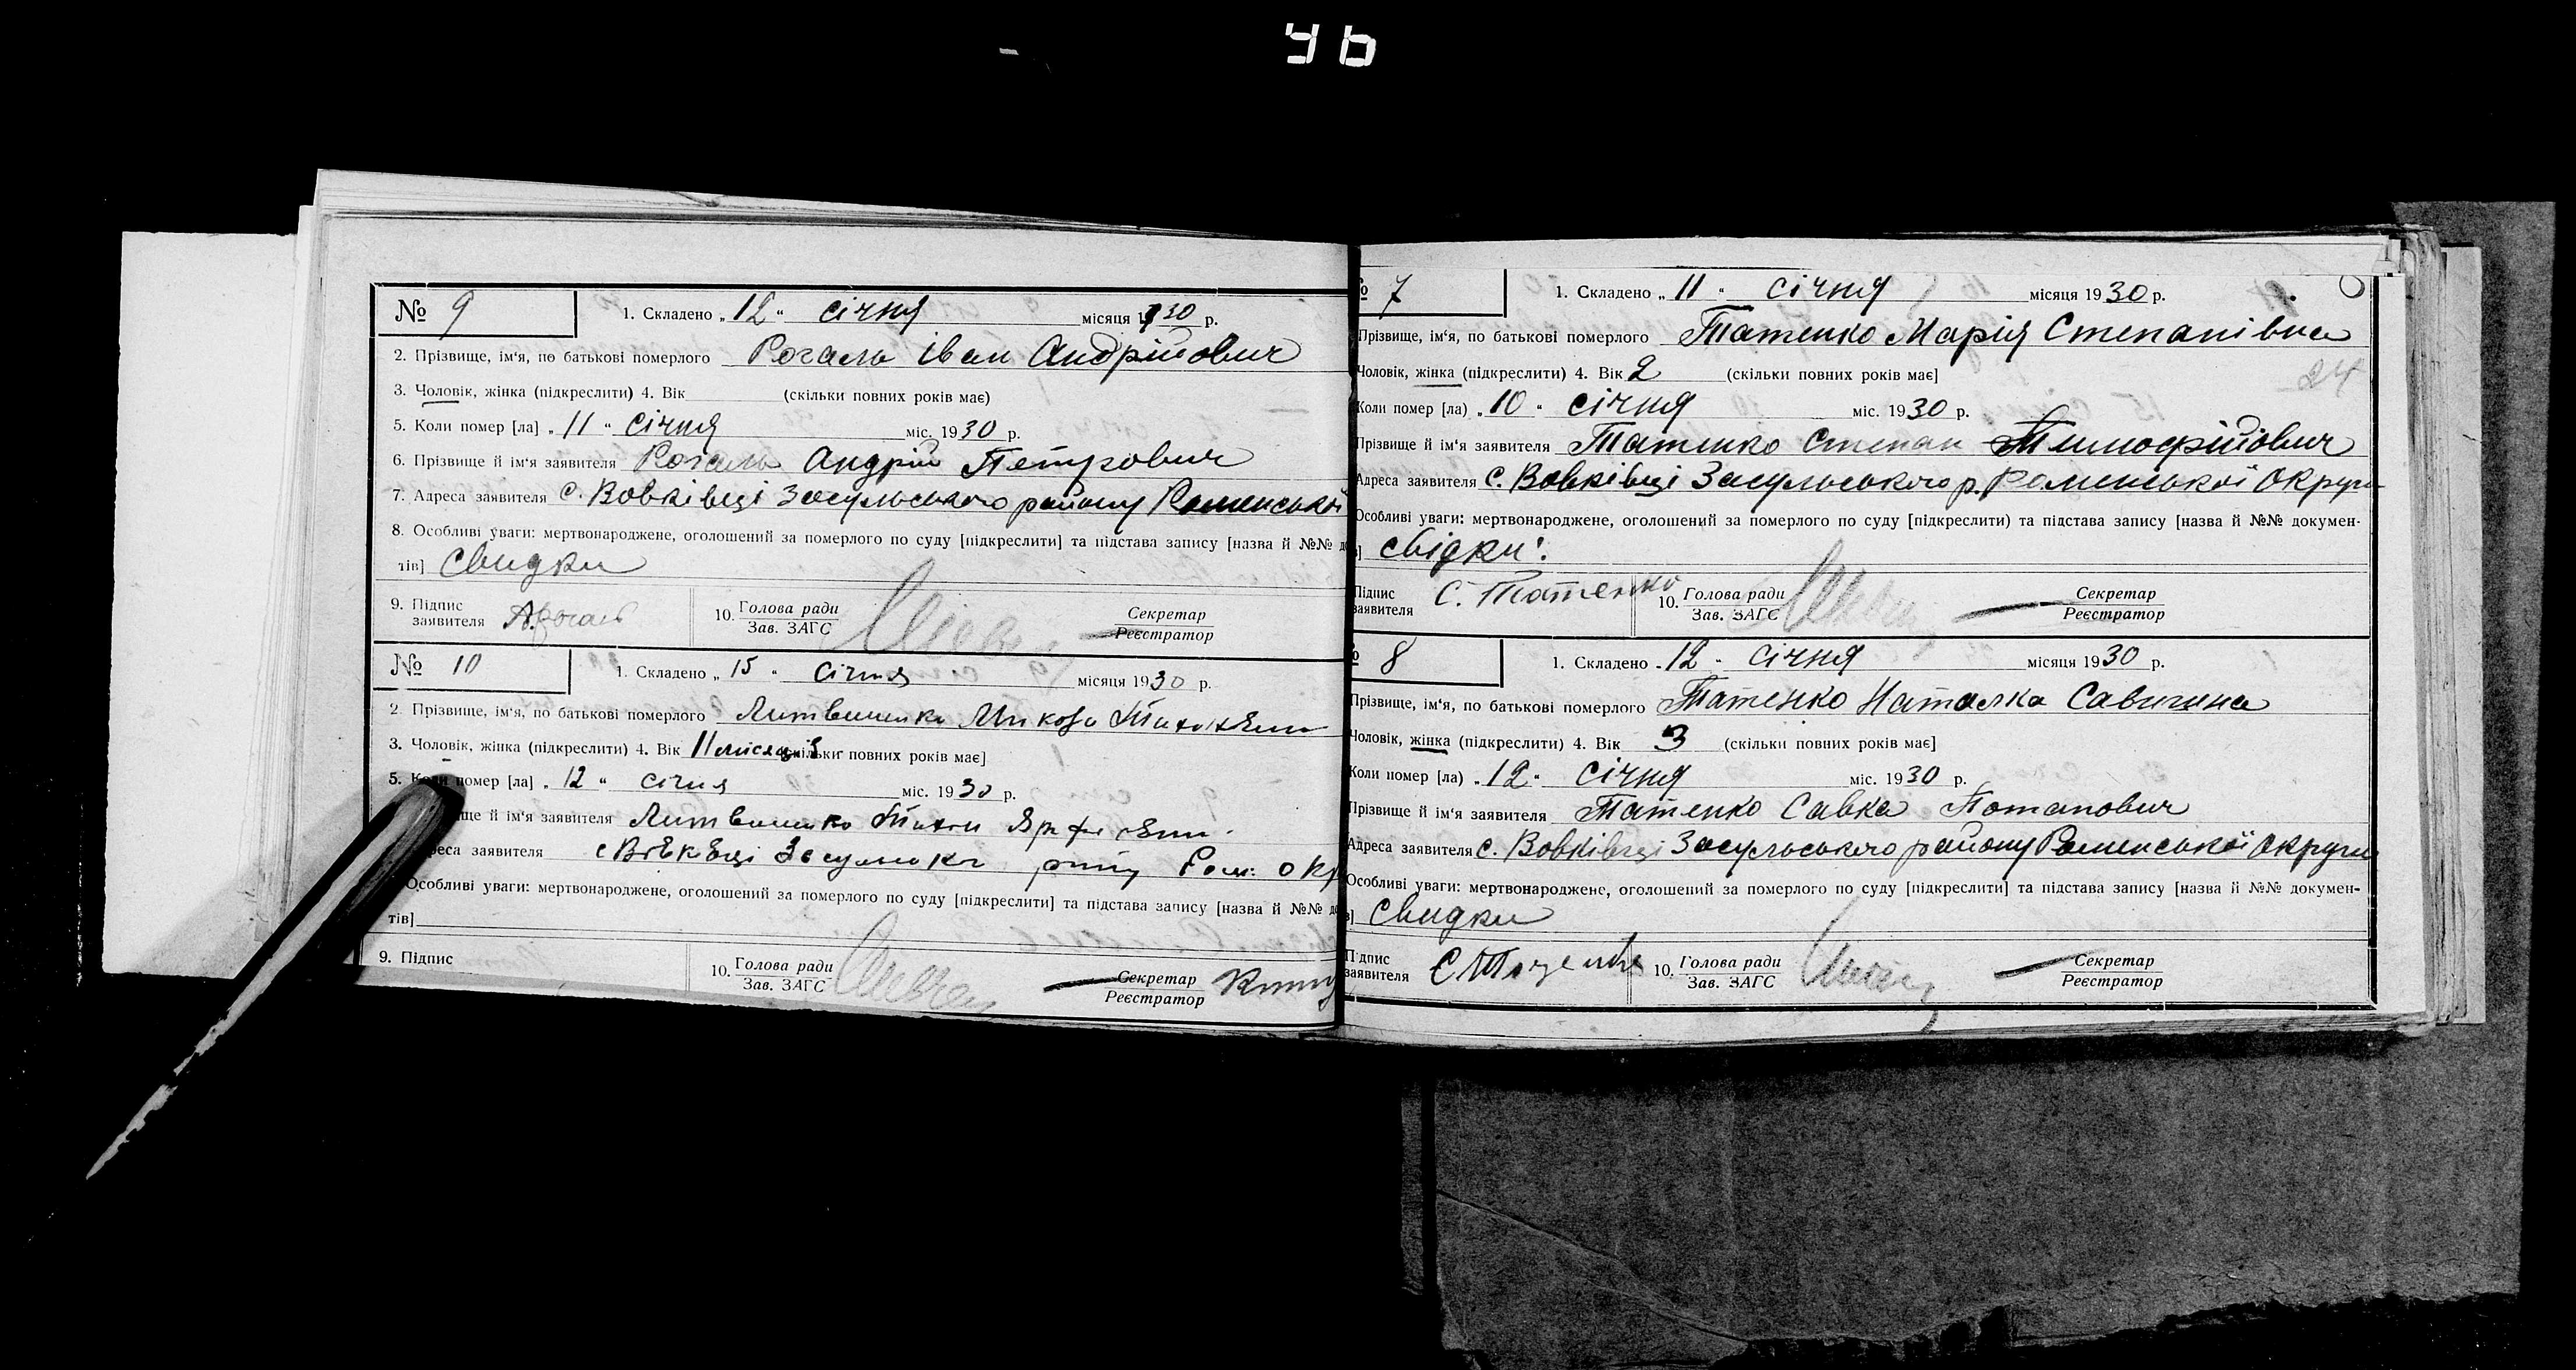 № 9
1. Складено „12“ січня місяця 1930 р.
2. Прізвище, ім'я, по батькові померлого Рогаль Іван Андрійович
3. Чоловік, жінка (підкреслити) 4. Вік (скільки повних років має)
5. Коли помер [ла] „11“ січня міс. 1930 р.
6. Прізвище й ім'я заявителя Рогаль Андрій Петрович
7. Адреса заявителя с. Вовківці Засульського району Роменської
8. Особливі уваги: мертвонароджене, оголошений за померлого по суду [підкреслити] та підстава запису [назва й №№ до
тів] Свидки
9. Підпис заявителя А. Рогаль 10. Голова ради Зав. ЗАГС Секретар Реєстратор
№ 10
1. Складено „15“ січня місяця 1930 р.
2. Прізвище, ім'я, по батькові померлого Литвиненко Микола
3. Чоловік, жінка (підкреслити) 4. Вік 11 місяців скільки повних років має]
5. Коли помер [ла] „12“ січня міс. 1930 р.
ще й ім'я заявителя Литвиненко Тихон
реса заявителя с Вовківці Ром. окр
Особливі уваги: мертвонароджене, оголошений за померлого по суду [підкреслити] та підстава запису [назва й №№ до
тів]
9. Підпис 10. Голова ради Зав. ЗАГС Секретар Реєстратор
№ 7
1. Складено „11“ січня місяця 1930 р.
Прізвище, ім'я, по батькові померлого Татенко Марія Степанівна
24
Чоловік, жінка (підкреслити) 4. Вік 2 (скільки повних років має]
Коли помер [ла) „10“ січня міс. 1930 р.
Прізвище й ім'я заявителя Татенко Степан Тимофійович
Адреса заявителя с. Вовківці Засульського р. Роменської Округи
Особливі уваги: мертвонароджене, оголошений за померлого по суду [підкреслити) та підстава запису [назва й №№ докумен-
] свідки:
Підпис заявителя С. Татенко 10. Голова ради Зав. ЗАГС Секретар Реєстратор
№ 8
1. Складено „12“ січня місяця 1930 р.
Прізвище, ім'я, по батькові померлого Татенко Наталка Савишна
Чоловік, жінка (підкреслити) 4. Вік 3 (скільки повних років має]
Коли помер [ла) „12“ січня міс. 1930 р.
Прізвище й ім'я заявителя Татенко Савка Потапович
Адреса заявителя с. Вовківці Засульського району Роменської Округи
Особливі уваги: мертвонароджене, оголошений за померлого по суду [підкреслити] та підстава запису [назва й №№ докумен-
] Свидки
Підпис заявителя 10. Голова ради Зав. ЗАГС Секретар Реєстратор